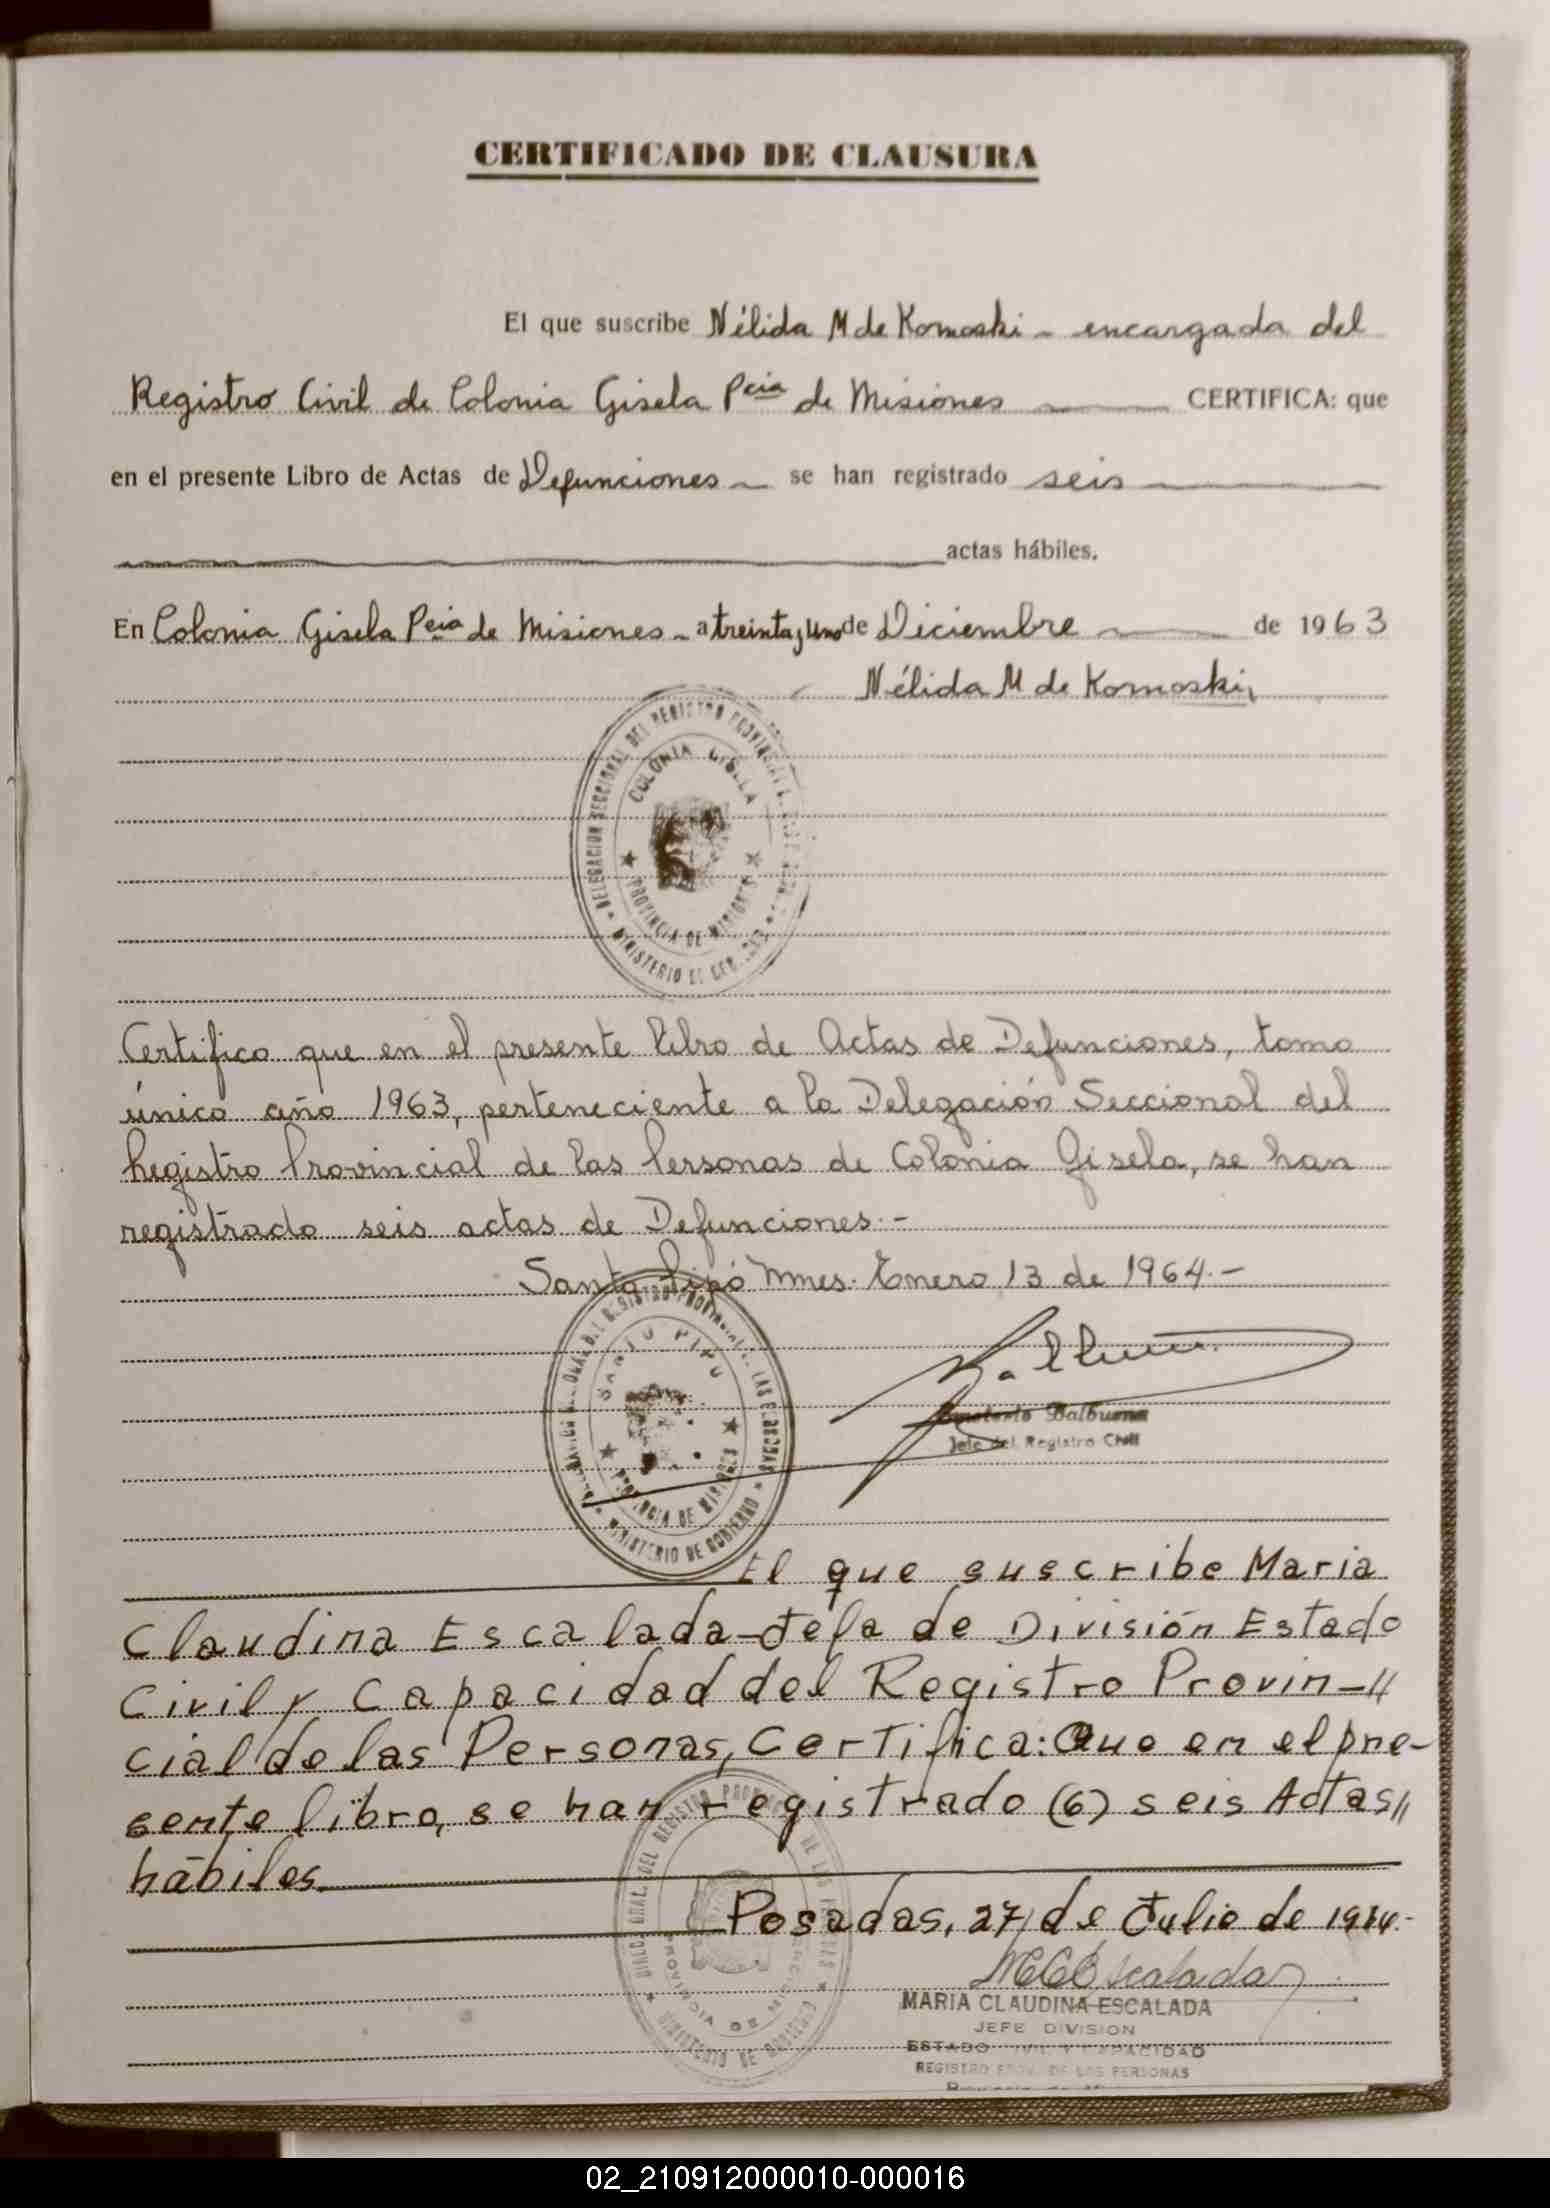 CERTIFICADO DE CLAUSURA
El que suscribe Nélida M de Komoski - encargada del
Registro Civil de Colonia Gisela Pcia de Misiones CERTIFICA: que
en el presente Libro de Actas de Defunciones - se han registrado seis
actas hábiles.
En Colonia Gisela Pcia de Misiones - a treinta y uno de Diciembre de 1963
Nélida M de Komoski
DELEGACION SECCIONAL DEL REGISTRO PROVINCIAL
COLONIA GISELA
PROVINCIA DE MISIONES
MINISTERIO DE
Certifico que en el presente libro de Actas de Defunciones, tomo
único año 1963, perteneciente a la Delegación Seccional del
Registro Provincial de las Personas de Colonia Gisela, se han
registrado seis actas de Defunciones.-
Santo Pipó Mnes. Enero 13 de 1964.-
SANTO PIPO
PROVINCIA DE MISIONES
MINISTERIO DE GOBIERNO
Balbuena
Jefe del Registro Civil
El que suscribe Maria
Claudina Escalada-Jefa de División Estado
Civil y Capacidad del Registro Provin-//
cial de las Personas, Certifica: Que en el pre-
sente libro, se han registrado (6) seis Actas//
hábiles.
Posadas, 27 de Julio de
MCEscalada
MARIA CLAUDINA ESCALADA
JEFE DIVISION
ESTADO CIVIL Y CAPACIDAD
REGISTRO PROV. DE LAS PERSONAS
02_210912000010-000016